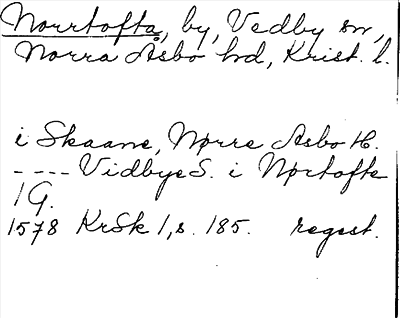 Norrtofta, by, Vedby sn,
Norra Åsbo hd, Krist. l.
i Skaane, Nørre Aasbo H.
---- Vidbye S. i Nørtofte
1 G.
1578 KrSk 1, s. 185. regest.